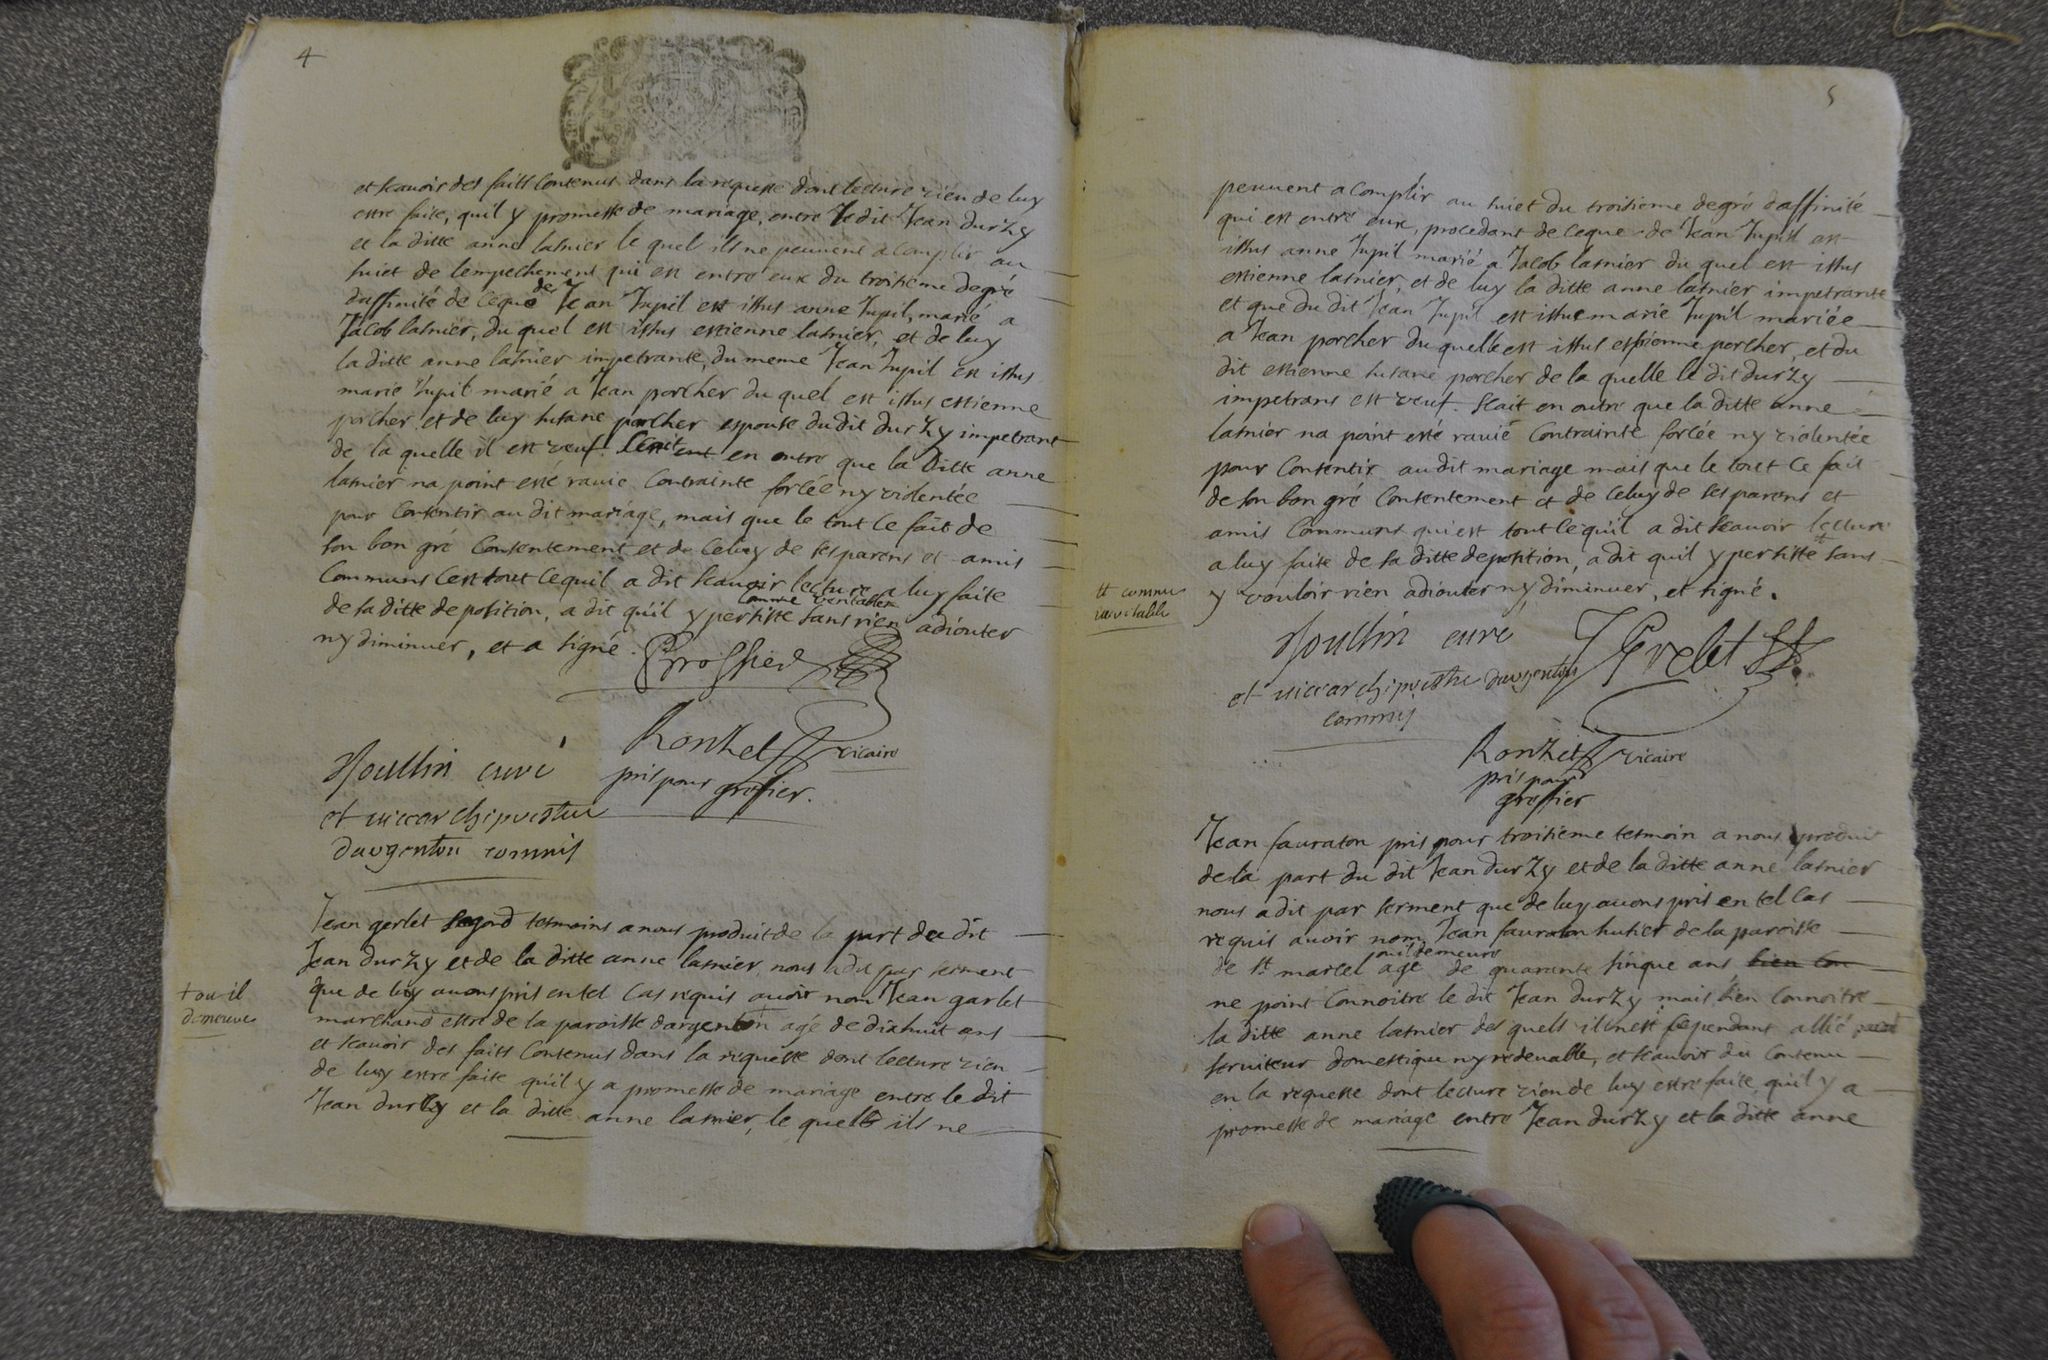 4
et scavoir des faits contenus dans la requeste dont lecture vien de luy
estre faite, quil y promesse de mariage, entre le dit Jean durZy
et la ditte anne lasnier le quel ils ne peuvent acomplir au
suiet de lempechement qui est entre eux du troisieme degré
daffinité de ceque de Jean Jupil est issus anne Jupil, marié a
Jacob lasnier, du quel est issus estienne lasnier, et de luy
la ditte anne lasnier impetrante, du meme Jean Jupil est issus
marie Jupil marié a Jean porcher du quel est issus estienne
porcher et de luy susane porcher espouse du dit durZy impetrant
de la quelle il est veuf en outre que la ditte anne
lasnier na point esté ravie contrainte forcée ny violentée
pour consentir au dit mariage, mais que le tout ce fait de
son bon gré consentement et de celuy de ses parens et amis
communs cest tout cequil a dit scavoir lecture a luy faite
de sa ditte deposition, a dit quil y persiste comme veritable sans rien adiouter
ny diminuer, et a signé.
ronZet vicaire
pris pour greffier.
Moullin curé
et vicearchiprestre
dargenton commis
Jean gerlet segond tesmoins a nous produit de la part du dit
Jean durZy et de la ditte anne lasnier, nous a dit par serment
que de luy avons pris en tel cas requis avoir nom Jean garlet
marchand estre de la paroisse dargenton agé de dixhuit ans
+ ou il
demeure
et scavoir des faits contenus dans la requeste dont lecture vien
de luy estre faite quil y a promesse de mariage entre le dit
Jean durZy et la ditte anne lasnier, le quelle ils ne
5
peuvent acomplir au suiet du troisieme degré daffinité
qui est entre eux, procedant de ceque de Jean Jupil est
issus anne Jupil marié a Jacob lasnier du quel est issus
estienne lasnier, et de luy la ditte anne lasnier impetrante
et que du dit Jean Jupil est issue marie Jupil mariée
a Jean porcher du quelle est issus estienne porcher, et du
dit estienne susane porcher de la quelle le dit durZy
impetrans est veuf. scait en outre que la ditte anne
lasnier na point esté ravie contrainte forcée ny violentée
pour consentir au dit mariage mais que le tout ce fait
de son bon gré consentement et de celuy de ses parens et
amis communs qui est tout cequil a dit scavoir lecture
a luy faite de sa ditte deposition, a dit quil y persiste # sans
# comme
veritable
y vouloir rien adiouter ny diminuer, et signé.
Moullin curé
et vicearchiprestre dargenton
commis
J Grelet
ronZet vicaire
pris pour
greffier
Jean fauraton pris pour troisieme tesmoin a nous produit
de la part du dit Jean durZy et de la ditte anne lasnier
nous a dit par serment que de luy avons pris en tel cas
requis avoir nom Jean fauraton de la paroisse
de st marcel ou il demeure agé de quarante sinque ans
ne point connoitre le dit Jean durZy mais bien connoitre
la ditte anne lasnier des quels il nest cependant allié
serviteur domestique ny redevable, et scavoir du contenu
en la requeste dont lecture vien de luy estre faite, quil y a
promesse de mariage entre Jean durZy et la ditte anne